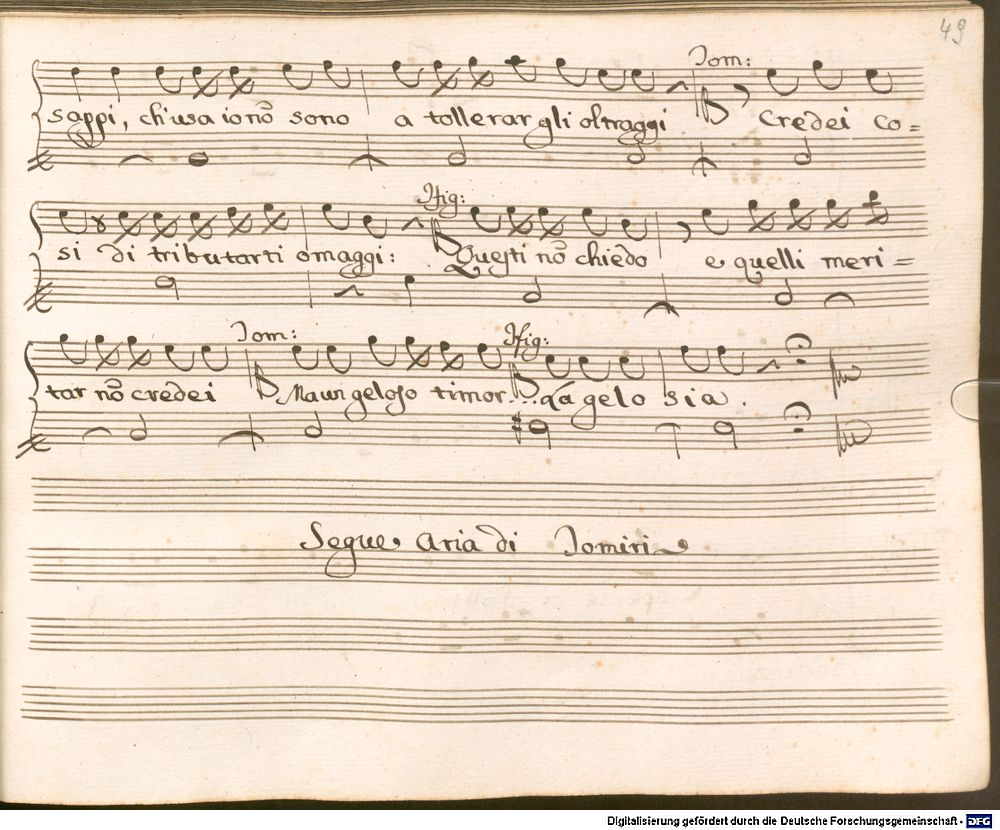 49
Jom:
sappi, ch'usa io nō sono a tollerar gli oltraggi credei co=
Ifig:
si di tributarti omaggi: Questi nō chiedo e quelli meri=
Jom: Ifig:
tar nō credei Ma un geloso timor... Qā gelosia.
Segue Aria di Jomiri
Digitalisierung gefördert durch die Deutsche Forschungsgemeinschaft - DFG